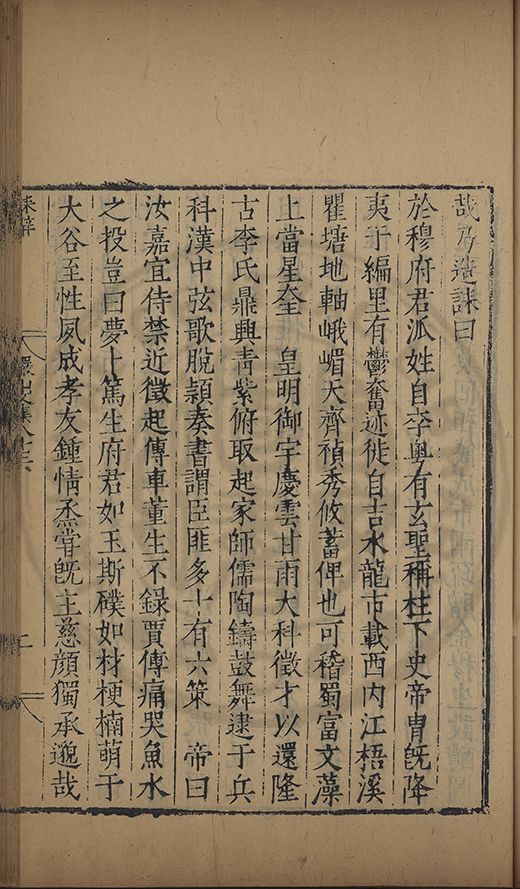 哉乃造誄曰
於穆府君派姓自李奥有玄聖稱柱下史帝冑旣降
夷于編里有鬱奮迹徙自吉水龍市載西内江梧溪
瞿塘地軸峨嵋天齊禎秀攸蓄俾也可稽蜀富文藻
上當星奎　皇明御宇慶雲甘雨大科徵才以還隆
古李氏鼎興靑紫俯取起家師儒陶鑄鼓舞逮于兵
科漢中弦歌脫頴奏書謂臣匪多十有六策　帝曰
汝嘉宜侍禁近徵起傳車董生不錄賈傳痛哭魚水
之投豈曰夢卜篤生府君如玉斯礫如材梗楠萌于
大谷至性夙成孝友鍾情烝嘗旣主慈顏獨承邈哉